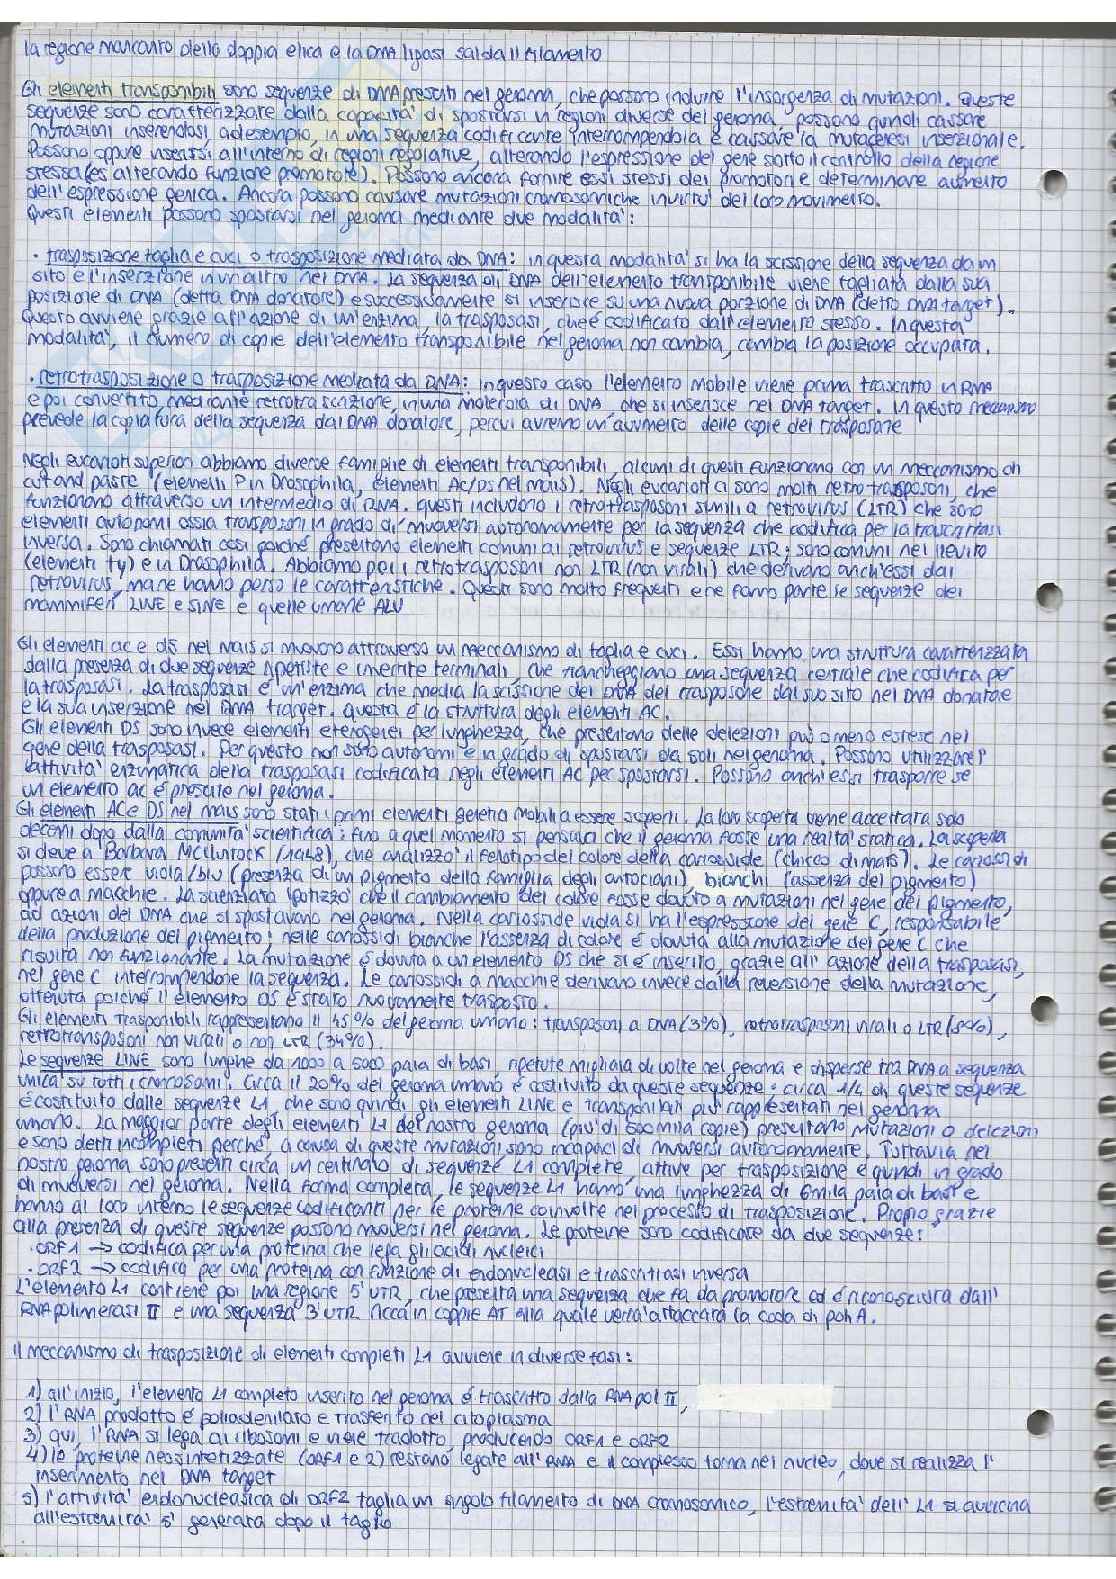 la regione mancante della doppia elica e la DNA ligasi salda il filamento
Gli elementi transponibili sono sequenze di DNA presenti nel genoma, che possono indurre l'insorgenza di mutazioni. Queste
sequenze sono caratterizzate dalla capacità di spostarsi in regioni diverse del genoma possono quindi causare
mutazioni inserendosi, ad esempio, in una sequenza codificante interrompendola e causare la mutagenesi inserzionale.
Possono oppure inserirsi all'interno di regioni regolative, alterando l'espressione del gene sotto il controllo della regione
stessa (es alterando funzione promotore). Possono ancora fornire essi stessi dei promotori e determinare aumento
dell'espressione genica. Ancora possono causare mutazioni cromosomiche in virtù del loro movimento.
Questi elementi possono spostarsi nel genoma mediante due modalità:
· trasposizione taglia e cuci o trasposizione mediata da DNA: in questa modalità si ha la scissione della sequenza da un
sito e l'inserzione in un altro nel DNA. La sequenza di DNA dell'elemento transponibile viene tagliata dalla sua
posizione di DNA (detta DNA donatore) e successivamente si inserisce su una nuova porzione di DNA (detto DNA target).
Questo avviene grazie all'azione di un'enzima, la trasposasi, che è codificato dall'elemento stesso. In questa
modalità, il numero di copie dell'elemento transponibile nel genoma non cambia, cambia la posizione occupata.
· retrotrasposizione o trasposizione mediata da RNA: in questo caso l'elemento mobile viene prima trascritto in RNA
e poi convertito mediante retrotrascrizione, in una molecola di DNA, che si inserisce nel DNA target. In questo meccanismo
prevede la copiatura della sequenza dal DNA donatore, per cui avremo un aumento delle copie del trasposone
Negli eucarioti superiori abbiamo diverse famiglie di elementi transponibili, alcuni di questi funzionano con un meccanismo di
cut and paste (elementi P in Drosophila, elementi Ac/Ds nel mais). Negli eucarioti ci sono molti retrotrasposoni, che
funzionano attraverso un intermedio di RNA. questi includono i retrotrasposoni simili a retrovirus (LTR) che sono
elementi autonomi ossia transposoni in grado di muoversi autonomamente per la sequenza che codifica per la trascrittasi
inversa. Sono chiamati così perché presentano elementi comuni ai retrovirus e sequenze LTR; sono comuni nel lievito
(elementi ty) e in Drosophila. Abbiamo poi i retrotrasposoni non LTR (non virali) che derivano anch'essi dai
retrovirus, ma ne hanno perso le caratteristiche. Questi sono molto frequenti e ne fanno parte le sequenze dei
mammiferi LINE e SINE e quelle umane ALU
Gli elementi ac e ds nel mais si muovono attraverso un meccanismo di taglia e cuci. Essi hanno una struttura caratterizzata
dalla presenza di due sequenze ripetute e invertite terminali, che fiancheggiano una sequenza centrale che codifica per
la trasposasi. La trasposasi è un'enzima che media la scissione dei DNA del trasposone dal suo sito nel DNA donatore
e la sua inserzione nel DNA tranger. Questa è la struttura degli elementi AC.
Gli elementi DS sono invece elementi eterogenei per lunghezza, che presentano delle delezioni più o meno estese nel
gene della trasposasi. Per questo non sono autonomi e in grado di spostarsi da soli nel genoma. Possono utilizzare l'
attività enzimatica della trasposasi codificata negli elementi AC per spostarsi. Possono anch'essi trasporre se
un elemento ac è presente nel genoma.
Gli elementi AC e DS nel mais sono stati i primi elementi genetici mobili a essere scoperti. La loro scoperta venne accettata solo
decenni dopo dalla comunità scientifica: fino a quel momento si pensava che il genoma fosse una realtà statica. La scoperta
si deve a Barbara McClintock (1948), che analizzò il fenotipo del colore della cariosside (chicco di mais). Le cariossidi
possono essere viola/blu (presenza di un pigmento della famiglia degli antociani), bianchi (assenza del pigmento)
oppure a macchie. La scienziata ipotizzò che il cambiamento del colore fosse dovuto a mutazioni nel gene del pigmento,
ad azioni del DNA che si spostavano nel genoma. Nella cariosside viola si ha l'espressione del gene C, responsabile
della produzione del pigmento; nelle cariossidi bianche l'assenza di colore è dovuta alla mutazione del gene C che
risulta non funzionante. La mutazione è dovuta a un elemento DS che si è inserito, grazie all'azione della trasposasi,
nel gene C interrompendone la sequenza. Le cariossidi a macchie derivano invece dalla reversione della mutazione,
ottenuta poiché il elemento DS è stato nuovamente trasposto.
Gli elementi Trasponibili rappresentano il 45% del genoma umano: transposoni a DNA (3%), retrotrasposoni virali o LTR (8%),
retrotransposoni non virali o non LTR (34%).
Le sequenze LINE sono lunghe da 1000 a 5000 paia di basi, ripetute migliaia di volte nel genoma e disperse tra DNA a sequenza
unica su tutti i cromosomi. Circa il 20% del genoma umano è costituito da queste sequenze: circa 1/2 di queste sequenze
è costituito dalle sequenze L1, che sono quindi gli elementi LINE e transponibili più rappresentati nel genoma
umano. La maggior parte degli elementi L1 del nostro genoma (più di 500 mila copie) presentano mutazioni o delezioni
e sono detti incompleti perché, a causa di queste mutazioni sono incapaci di muoversi autonomamente. Tuttavia nel
nostro genoma sono presenti circa un centinaio di sequenze L1 complete, attive per trasposizione e quindi in grado
di muoversi nel genoma. Nella forma completa, le sequenze L1 hanno una lunghezza di 6mila paia di basi e
hanno al loro interno le sequenze codificanti per le proteine coinvolte nel processo di trasposizione. Proprio grazie
alla presenza di queste sequenze possono muoversi nel genoma. Le proteine sono codificate da due sequenze:
· ORF1 → codifica per una proteina che lega gli acidi nucleici
· ORF2 → codifica per una proteina con funzione di endonucleasi e trascrittasi inversa
L'elemento L1 contiene poi una regione 5' UTR, che presenta una sequenza che fa da promotore ed è riconosciuta dall'
RNA polimerasi II e una sequenza 3' UTR ricca in coppie AT alla quale verrà attaccata la coda di poli A.
Il meccanismo di trasposizione di elementi completi L1 avviene in diverse fasi:
1) all'inizio, l'elevento L1 completo inserito nel genoma è trascritto dalla RNA pol II,
2) l'RNA prodotto è poliadenilato e trasferito nel citoplasma
3) qui, l'RNA si lega ai ribosomi e viene tradotto, producendo ORF1 e ORF2
4) le proteine neosintetizzate (ORF1 e 2) restano legate all'RNA e il complesso torna nel nucleo, dove si realizza l'
inserimento nel DNA target
5) l'attività endonucleasica di ORF2 taglia un singolo filamento di DNA cromosomico, l'estremità dell'L1 si avvicina
all'estremità 5' generata dopo il taglio